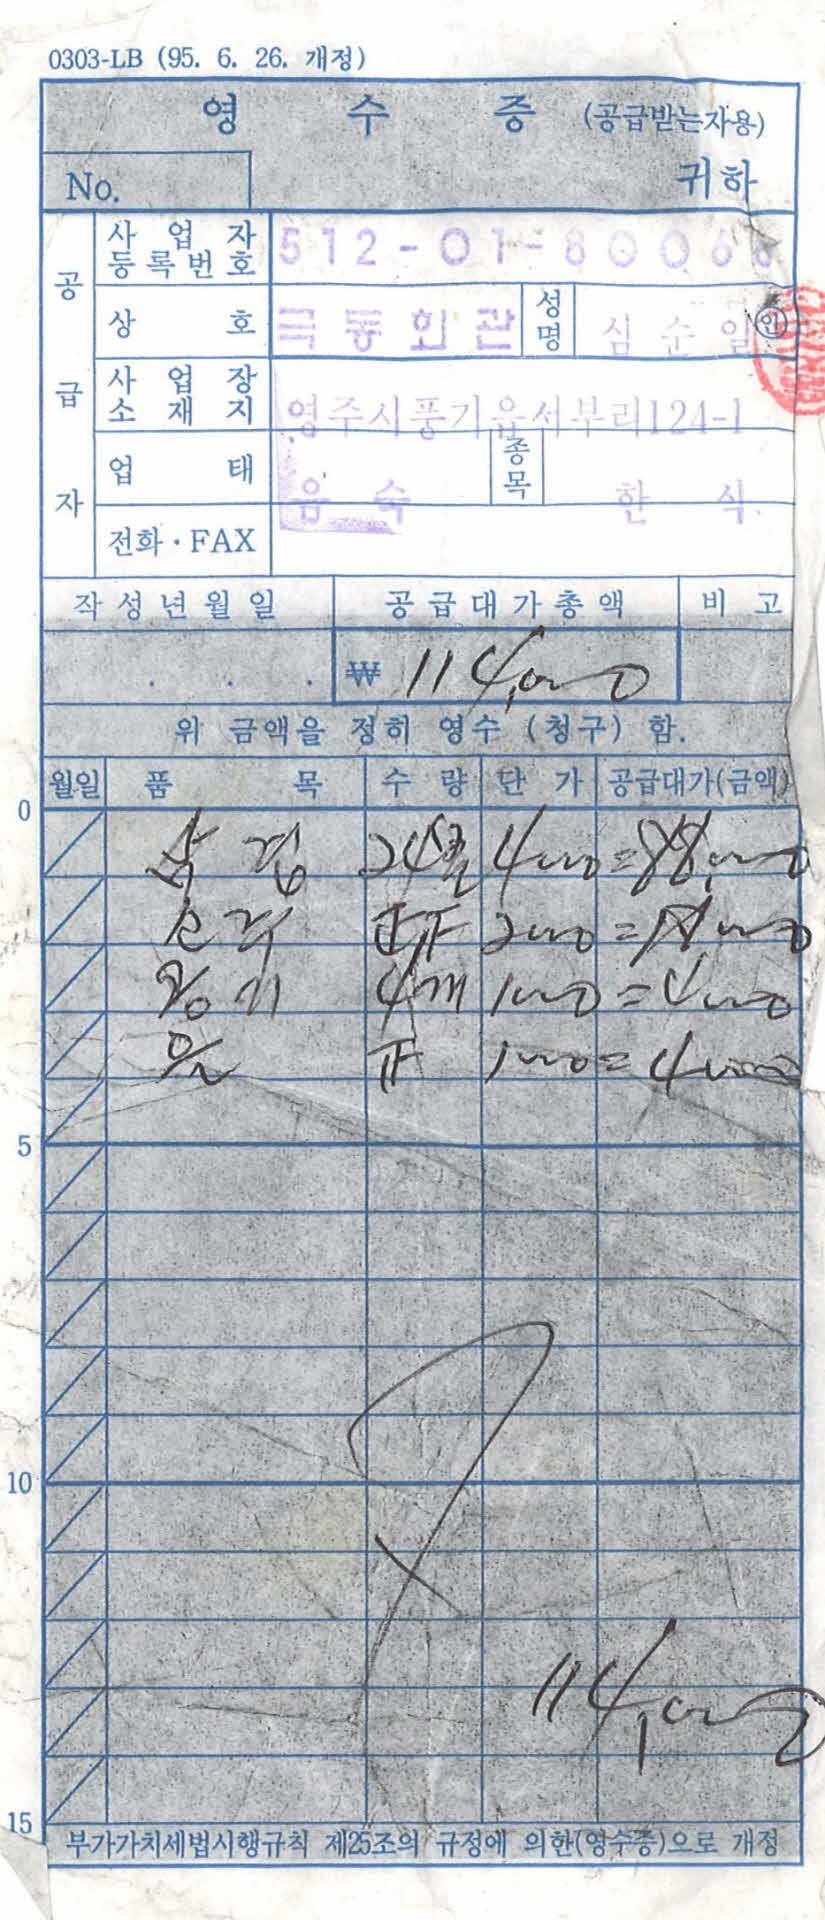 0303-LB (95. 6. 26. 개정)
영 수 증 (공급받는자용)
No. 귀하
공급자
사업자등록번호 512-01-80068
상호 극동회관 성명 심순일 ㊞
사업장소재지 영주시풍기읍서부리124-1
업태 음숙 종목 한식
전화·FAX
작성년월일 공급대가총액 비고
. . . ₩ 114,000
위 금액을 정히 영수 (청구) 함.
월일 품목 수량 단가 공급대가(금액)
0
24 4000 = 88,000
소주 正 2000 =
공기 4개 1000 = 4000
1000 = 4000
5
10
114,000
15
부가가치세법시행규칙 제25조의 규정에 의한(영수증)으로 개정